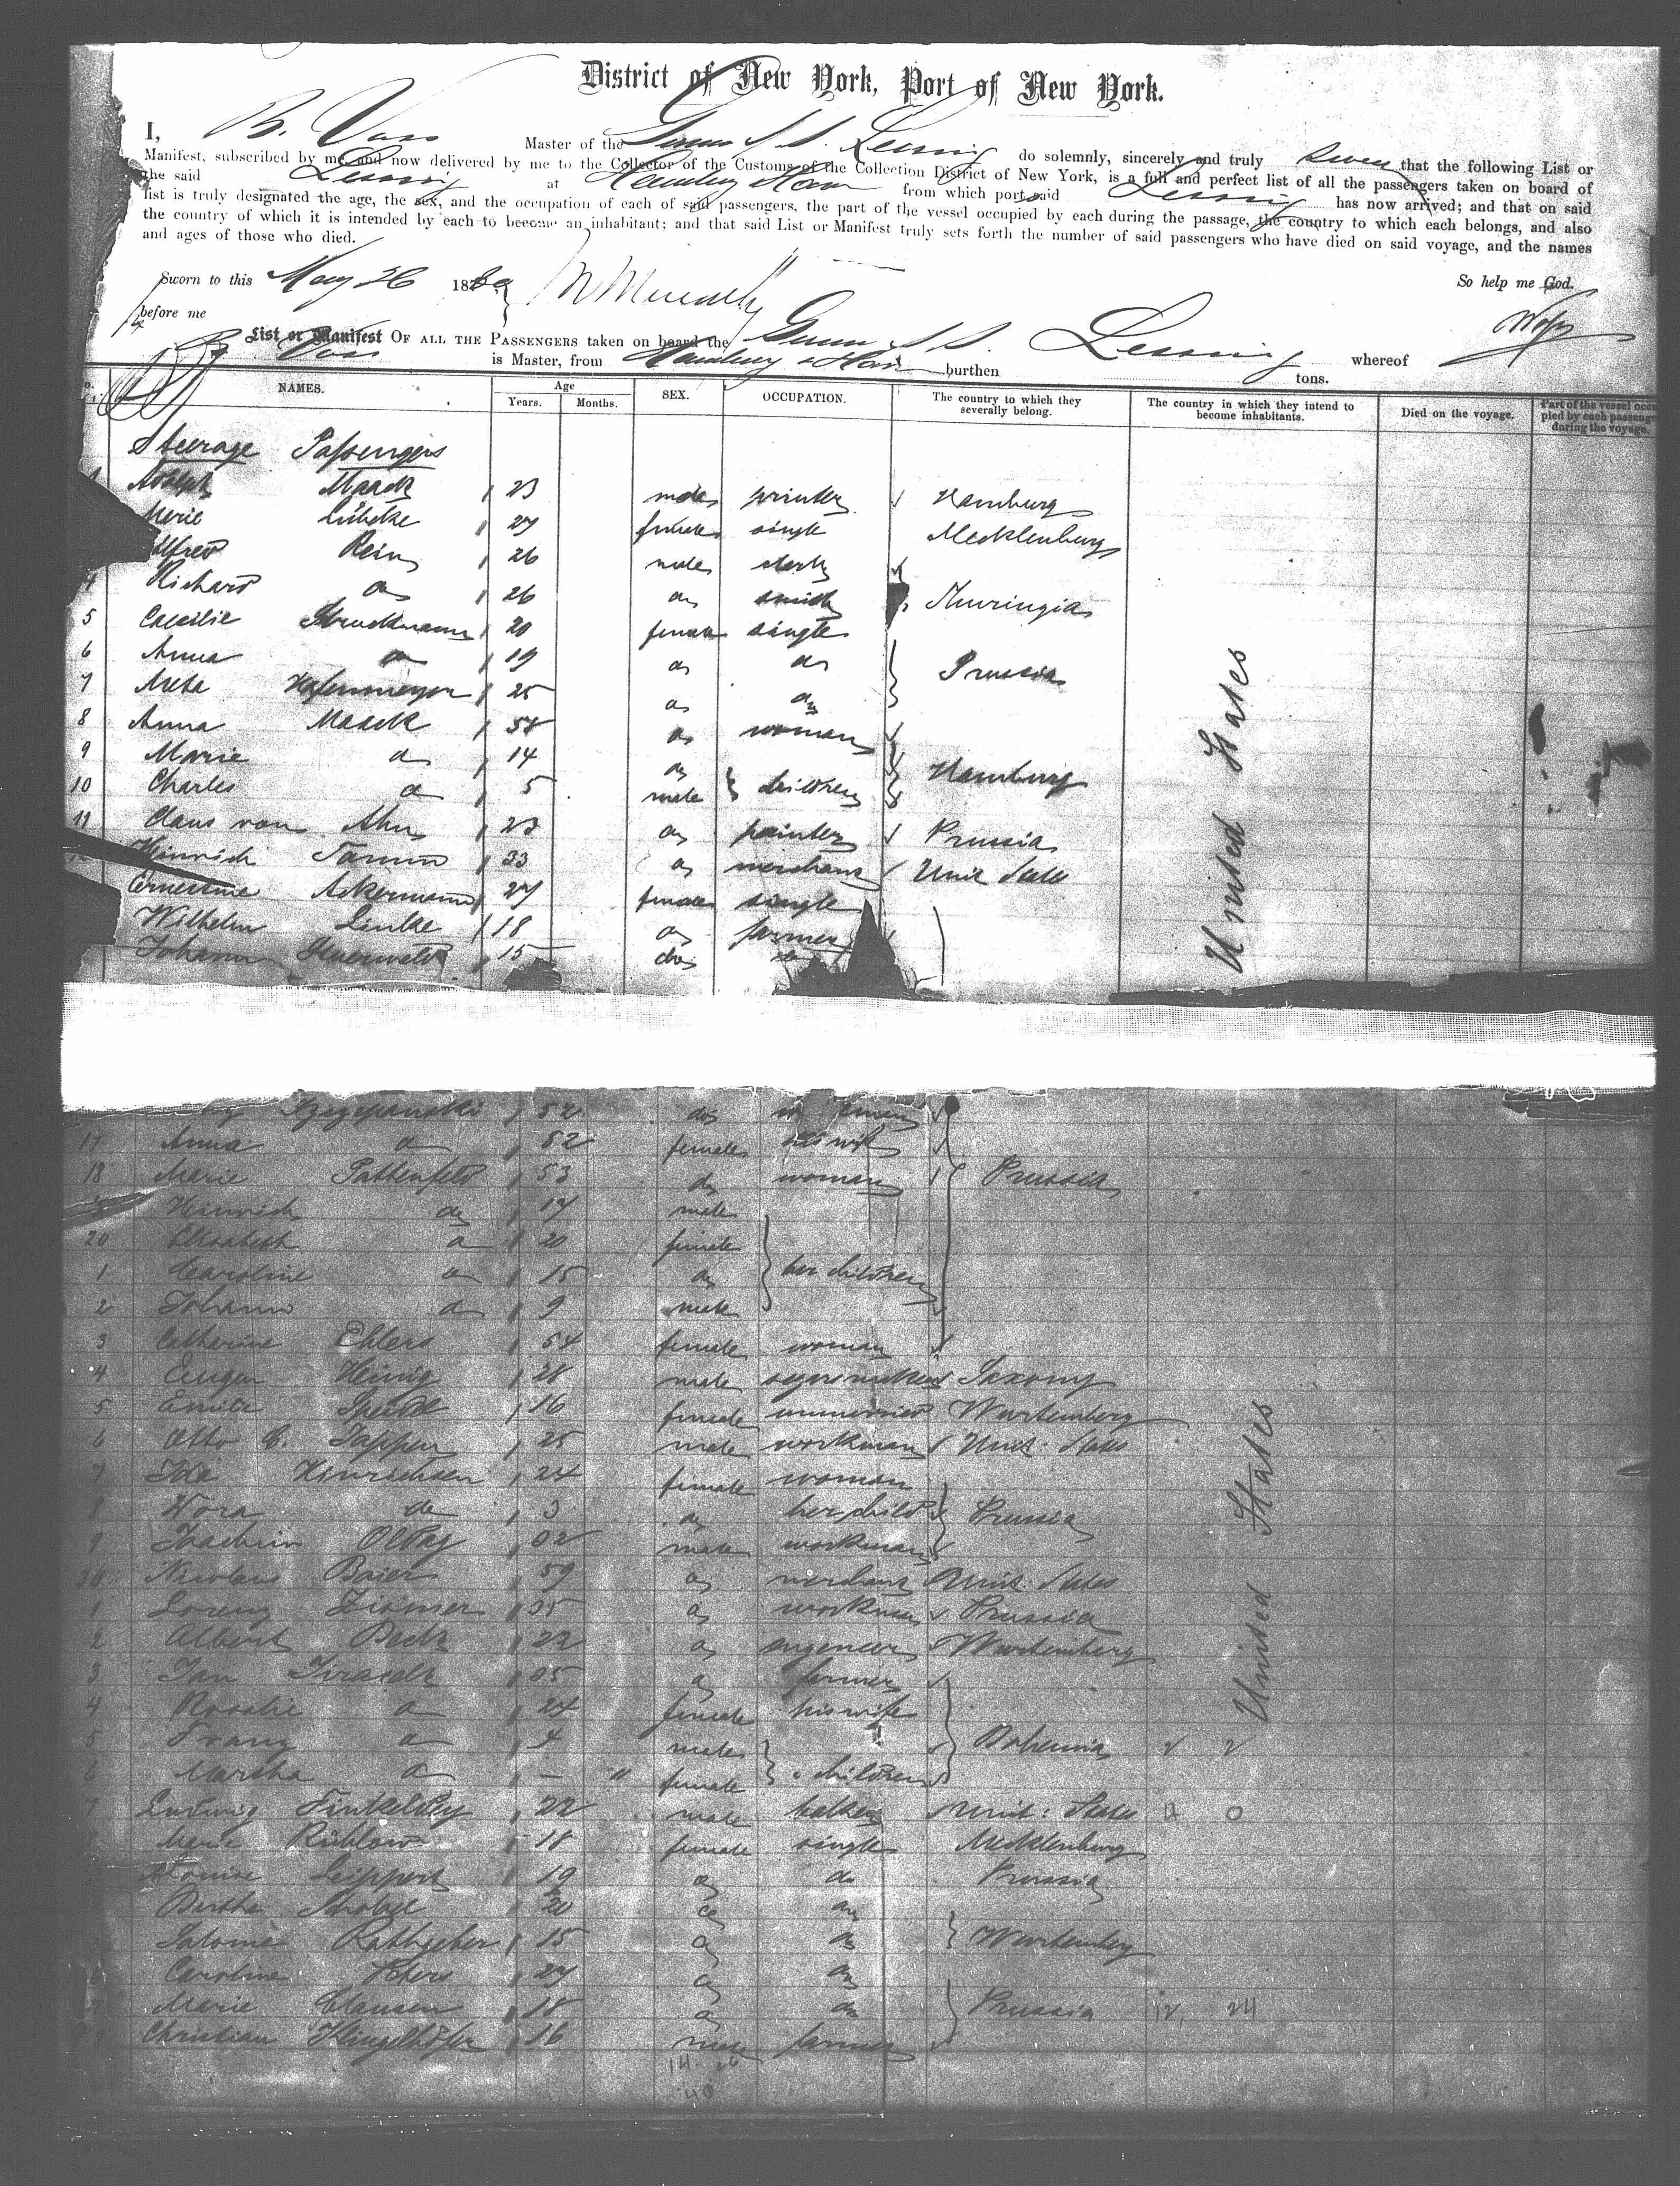 District of New York, Port of New York.
I, B. Voss Master of the Germ S. S. Lessing do solemnly, sincerely and truly swear that the following List or
Manifest, subscribed by me, and now delivered by me to the Collector of the Customs of the Collection District of New York, is a full and perfect list of all the passengers taken on board of
the said Lessing at Hamburg Havre from which port said Lessing has now arrived; and that on said
list is truly designated the age, the sex, and the occupation of each of said passengers, the part of the vessel occupied by each during the passage, the country to which each belongs, and also
the country of which it is intended by each to become an inhabitant; and that said List or Manifest truly sets forth the number of said passengers who have died on said voyage, and the names
and ages of those who died.
So help me God.
Sworn to this May 26 1880
before me
List or Manifest OF ALL THE PASSENGERS taken on board the Germ S. S. Lessing whereof
B. Voss is Master, from Hamburg & Havre burthen tons.
NAMES. Age Years. Months. SEX. OCCUPATION. The country to which they severally belong. The country in which they intend to become inhabitants. Died on the voyage. Part of the vessel occupied by each passenger during the voyage.
Steerage Passengers
Adolph Maack 23 male printer Hamburg
Marie Lübcke 27 female single Mecklenburg
Alfred Rein 26 male clerk
4 Richard do 26 do smith Thuringia
5 Caecilie Struckmann 20 female single
6 Anna do 19 do do Prussia
7 Meta Hafenmeyer 25 do do
8 Anna Maack 54 do woman
9 Marie do 14 do
10 Charles do 5 male children Hamburg
11 Claus von Ahn 23 do painter Prussia
Heinrich Tamm 33 do merchant Unit States
Ernestine Ackermann 27 female single
Wilhelm Lintke 18 do farmer
Johann 15 do do
United States
Szczepanski 52 do
17 Anna do 52 female his wife
18 Marie Pattenfeld 53 do woman Prussia
Heinrich do 17 male
20 Elisabeth do 20 female
1 Caroline do 15 do her children
2 Johann do 9 male
3 Catherine Ehlers 54 female woman
4 Eugen Heinig 28 male segarmaker Saxony
5 Emilie Speidel 16 female unmarried Wurtemberg
6 Otto C. Tappen 25 male workman Unit. States
7 Ida Hinrichsen 24 female woman
8 Nora do 3 do her child Prussia
9 Joachim male workman
30 Nicolaus Baier 59 do merchant Unit. States
1 Lorenz 35 do workman Prussia
2 Albert Beck 22 do engeneer Wurtemberg
3 Jan Jirasek 35 do farmer
4 Rosalie do 24 female his wife
5 Franz do 4 male Bohemia
6 Martha do — " female children
7 Ludwig 22 male Unit: States 4 0
8 Marie Rühlow 18 female single Mecklenburg
Louise Leippert 19 do do Prussia
Bertha Strobel 20 do do
Salome Rathgeber 15 do do Wurtemberg
Caroline Peters 27 do do
Marie Clausen 18 do do Prussia 12, 24
Christian Klingelhöfer 16 male farmer
United States
14 26
40